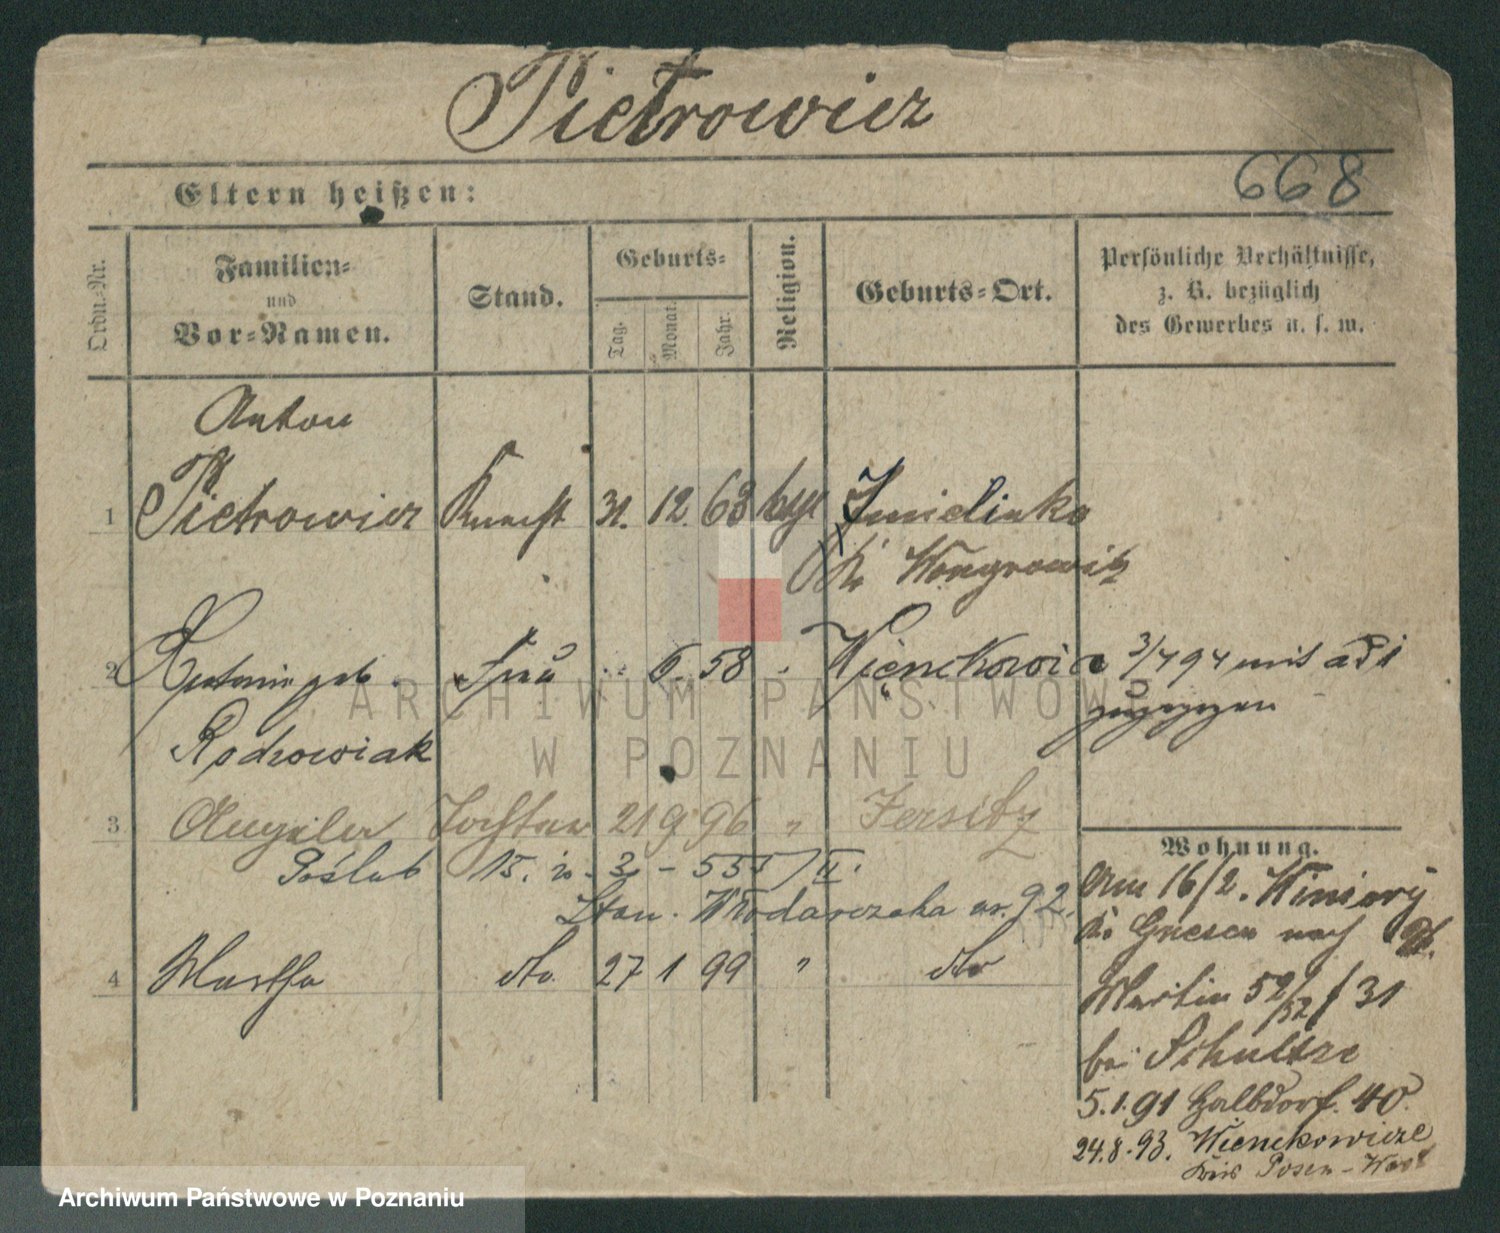 Pietrowicz
668
Eltern heißen:
Ordn.-Nr.
Familien-
und
Vor-Namen.
Stand.
Geburts-
Tag.
Monat.
Jahr.
Religion.
Geburts-Ort.
Persönliche Verhältnisse,
z. B. bezüglich
des Gewerbes u. s. w.
Anton
1 Pietrowicz Knecht 31. 12. 68 kath Zmielinko
Kr Wongrowitz
2 Antonie geb. Frau 6. 58 Wienckowice 3/7 94 mit ad 1
zugezogen
Rodrowiak
3 Tochter 21 9 96 " Jersitz
Poślub 15. 2. - 55
Stan. Włodarczaka ur. 92.
4 Martha dto. 27 1 99 " dto
Wohnung.
Am 16/2. Winiary
Kr Gnesen nach
Martin 52/ 31
bei Schultze
5.1.91 Halbdorf. 40.
24.8.93. Wienckowicze
Kreis Posen-West
ARCHIWUM PAŃSTWOWE
W POZNANIU
Archiwum Państwowe w Poznaniu